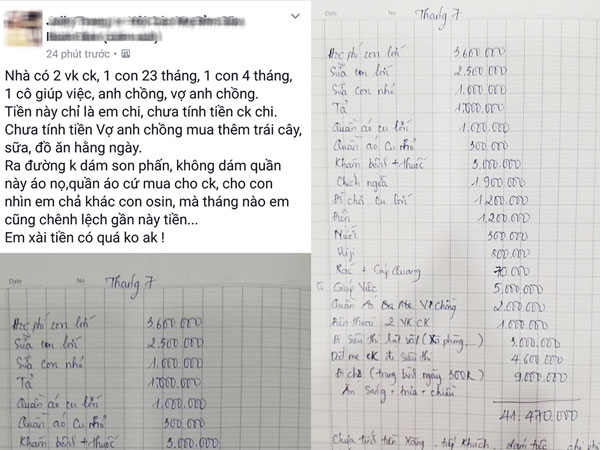 24 phút trước
Nhà có 2 vk ck, 1 con 23 tháng, 1 con 4 tháng,
1 cô giúp việc, anh chồng, vợ anh chồng.
Tiền này chỉ là em chi, chưa tính tiền ck chi.
Chưa tính tiền Vợ anh chồng mua thêm trái cây,
sữa, đồ ăn hằng ngày.
Ra đường k dám son phấn, không dám quần
này áo nọ,quần áo cứ mua cho ck, cho con
nhìn em chả khác con osin, mà tháng nào em
cũng chênh lệch gần này tiền...
Em xài tiền có quá ko ak !
Date
Tháng 7
Học phí con lớn 3.600.000
Sữa con lớn 2.500.000
Sữa con nhỏ 1.000.000
Tả 1.000.000
Quần áo cu lớn 1.000.000
Quần áo cu nhỏ 300.000
Khám bệnh + thuốc 3.000.000
Date
Tháng 7
Học phí con lớn 3.600.000
Sữa con lớn 2.500.000
Sữa con nhỏ 1.000.000
Tả 1.000.000
Quần áo cu lớn 1.000.000
Quần áo cu nhỏ 300.000
Khám bệnh + thuốc 3.000.000
Chích ngừa 1.900.000
Đi chơi cu lớn 1.200.000
Điện 1.200.000
Nước 300.000
Wifi
Rác + Cáp Quang 70.000
Giúp Việc 5.000.000
Quần Áo Vợ Chồng 2.000.000
Điện thoại 2 VK CK 1.000.000
Đi siêu thị lặt vặt (Xà phòng...) 3.000.000
Dắt mẹ ck đi siêu thị 4.600.000
Đi chợ (trung bình ngày 300K) 9.000.000
Ăn sáng + trưa + chiều
41.470.000
Chưa tính tiền Xăng, tiếp khách, đám tiệc, chi phí